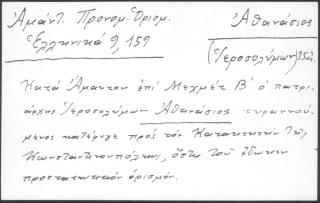 Ἀμάντ. Προνομ. Ὁρισμ.
Ἑλληνικά 9, 159
Ἀθανάσιος
(Ἱεροσολύμων) 15αι.
Κατά Ἄμαντον ἐπί Μεχμέτ Β΄ ὁ πατρι-
άρχης Ἱεροσολύμων Ἀθανάσιος τυραννού-
μενος κατέφυγε πρός τόν Κατακτητήν τῆς
Κωνσταντινουπόλεως, ὅστις τοῦ ἔδωκεν
προστατευτικόν ὁρισμόν.